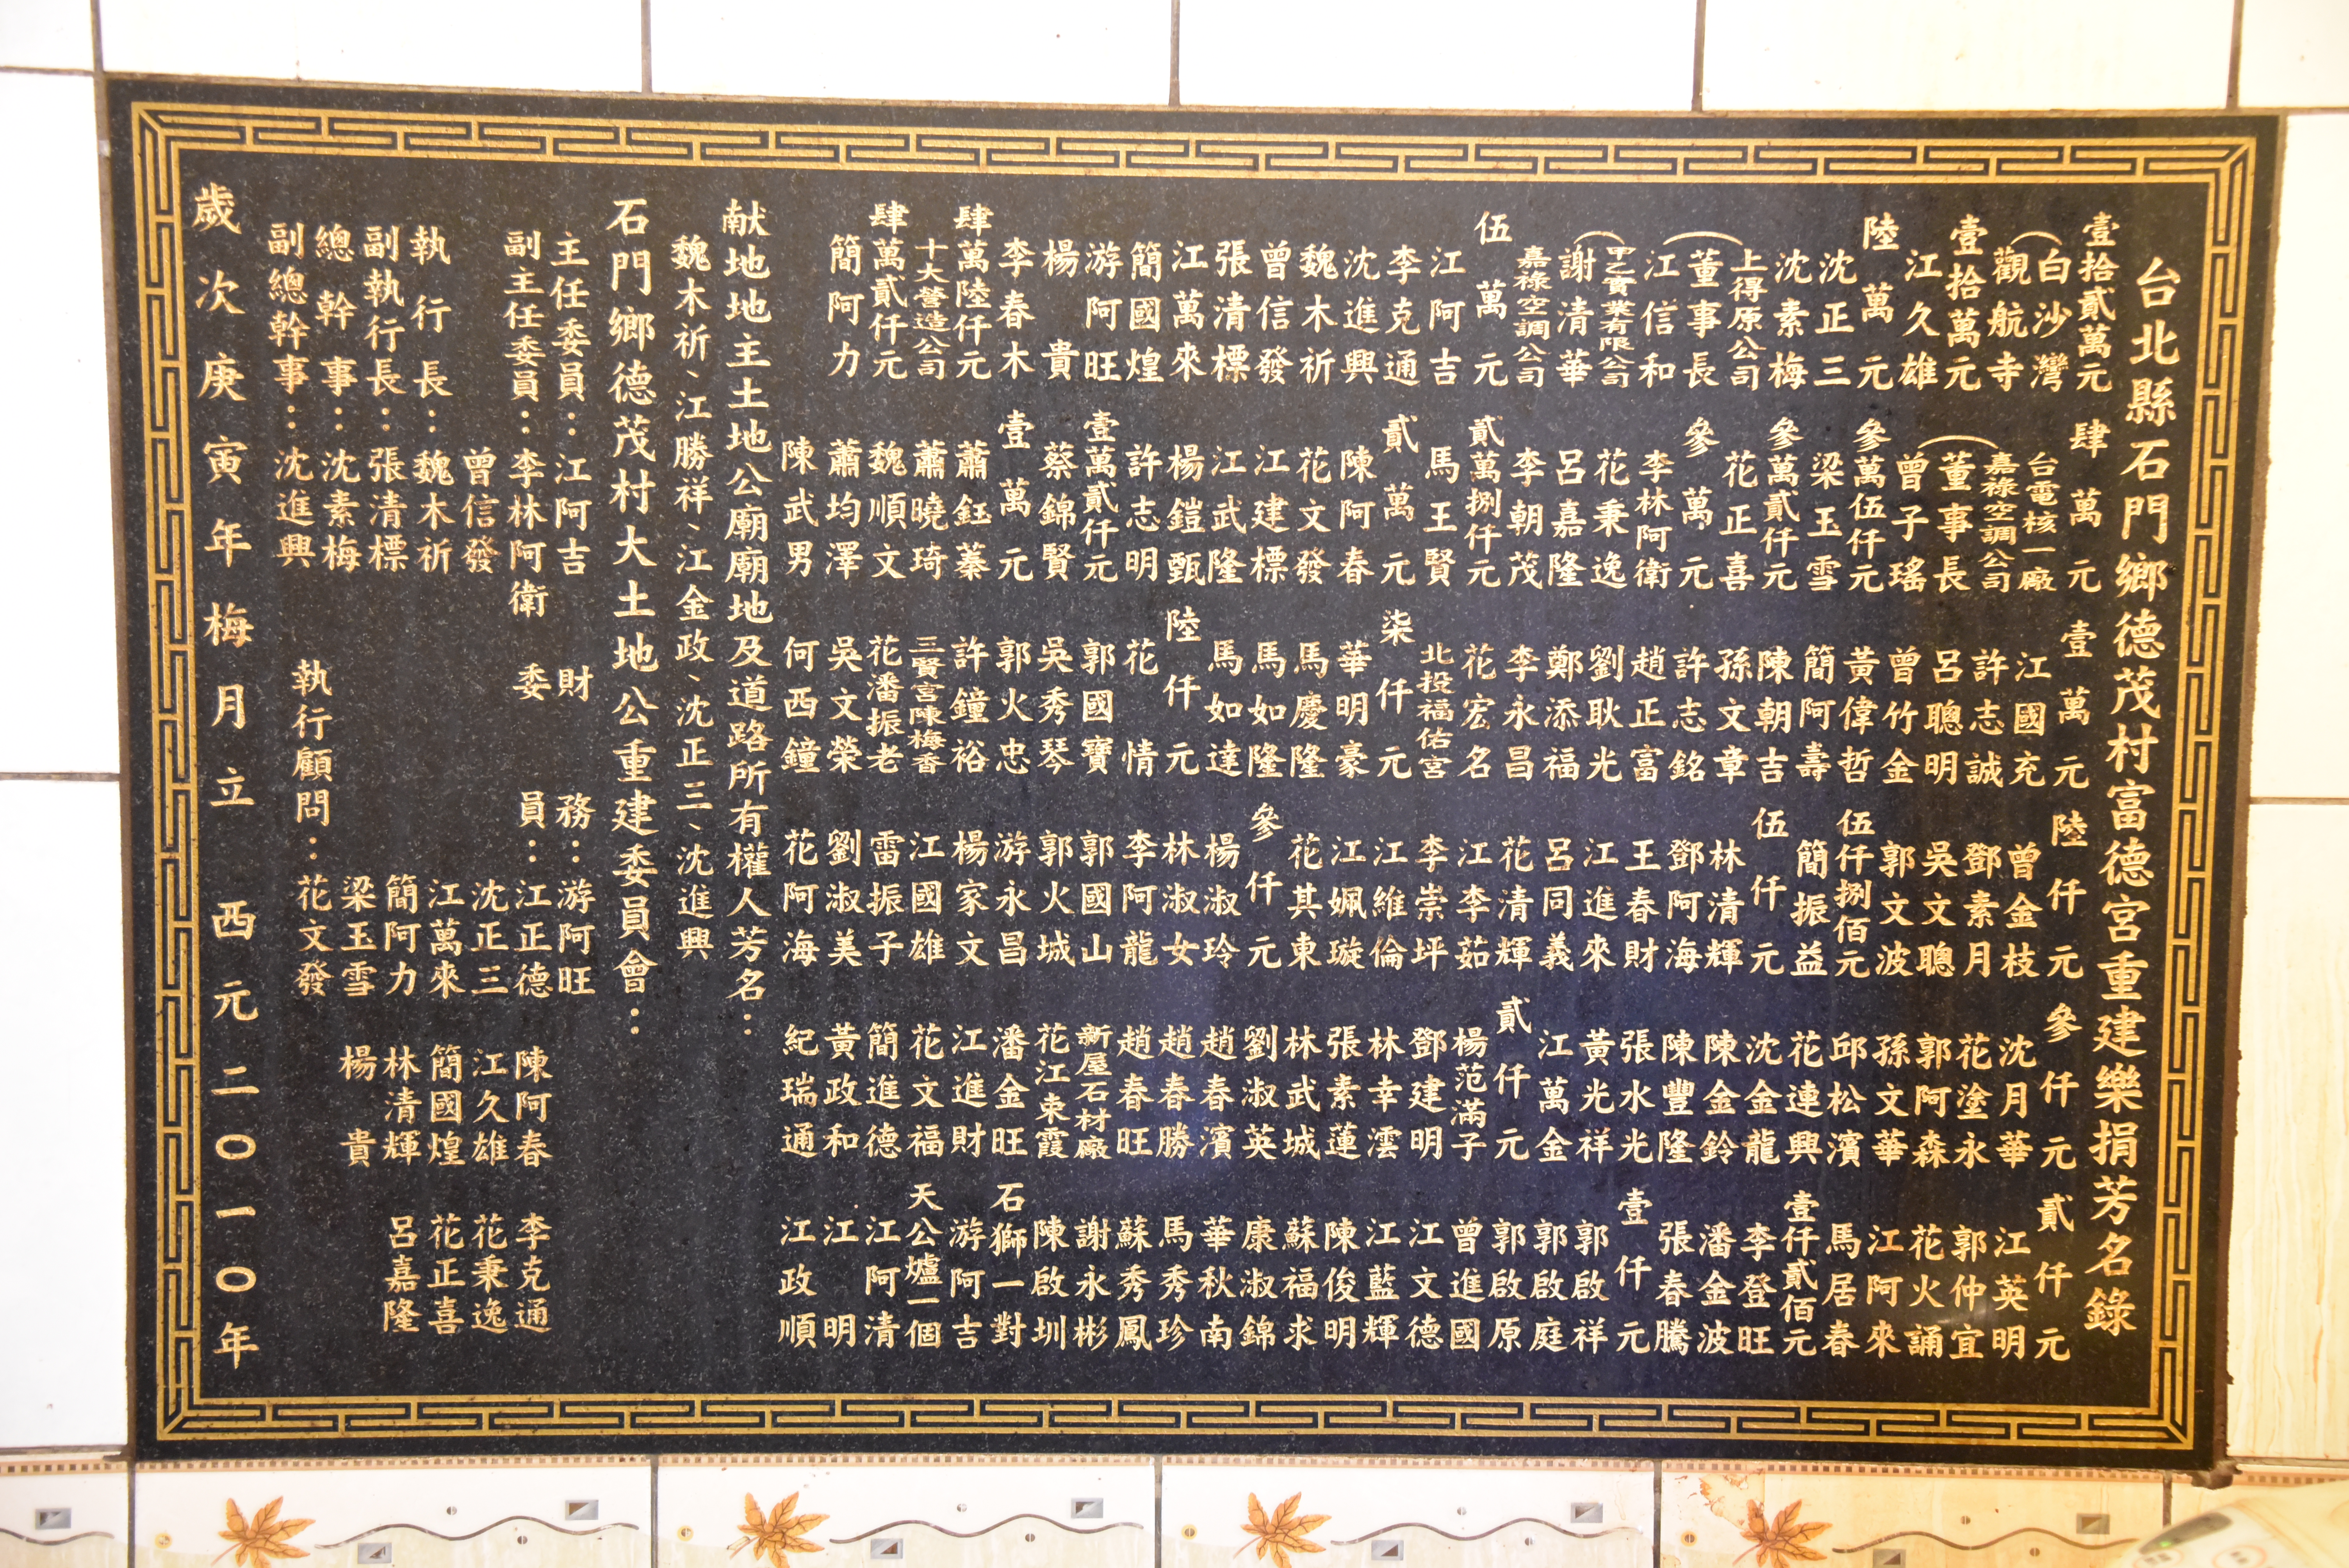 台北縣石門鄉德茂村富德宮重建樂捐芳名錄
壹拾貳萬元
白沙灣
觀航寺
壹拾萬元
江久雄
陸萬元
沈正三
沈素梅
上得原公司
董事長
江信和
甲乙實業有限公司
謝清華
嘉祿空調公司
伍萬元
江阿吉
李克通
沈進興
魏木祈
曾信發
張清標
江萬來
簡國煌
游阿旺
楊貴
李春木
肆萬陸仟元
十大營造公司
肆萬貳仟元
簡阿力
肆萬元
台電核一廠
嘉祿空調公司
董事長
曾子瑤
參萬伍仟元
梁玉雪
參萬貳仟元
花正喜
參萬元
李林阿衛
花秉逸
呂嘉隆
李朝茂
貳萬捌仟元
馬王賢
貳萬元
陳阿春
花文發
江建標
江武隆
楊鎧甄
許志明
壹萬貳仟元
蔡錦賢
壹萬元
蕭鈺蓁
蕭曉琦
魏順文
蕭均澤
陳武男
壹萬元
江國充
許志誠
呂聰明
曾竹金
黃偉哲
簡阿壽
陳朝吉
孫文章
許志銘
趙正富
劉耿光
鄭添福
李永昌
花宏名
北投福佑宮
柒仟元
華明豪
馬慶隆
馬如隆
馬如達
陸仟元
花情
郭國寶
吳秀琴
郭火忠
許鐘裕
三賢宮陳梅香
花潘振老
吳文榮
何西鐘
陸仟元
曾金枝
鄧素月
吳文聰
郭文波
伍仟捌佰元
簡振益
伍仟元
林清輝
鄧阿海
王春財
江進來
呂同義
花清輝
江李茹
李崇坪
江維倫
江姵璇
花其東
參仟元
楊淑玲
林淑女
李阿龍
郭國山
郭火城
游永昌
楊家文
江國雄
雷振子
劉淑美
花阿海
參仟元
沈月華
花塗永
郭阿森
孫文華
邱松濱
花連興
沈金龍
陳金鈴
陳豐隆
張水光
黃光祥
江萬金
貳仟元
楊范滿子
鄧建明
林幸澐
張素蓮
林武城
劉淑英
趙春濱
趙春勝
趙春旺
新屋石材廠
花江束霞
潘金旺
江進財
花文福
簡進德
黃政和
紀瑞通
貳仟元
江英明
郭仲宜
花火誦
江阿來
馬居春
壹仟貳佰元
李登旺
潘金波
張春騰
壹仟元
郭啟祥
郭啟庭
郭啟原
曾進國
江文德
江藍輝
陳俊明
蘇福求
康淑錦
華秋南
馬秀珍
蘇秀鳳
謝永彬
陳啟圳
石獅一對
游阿吉
天公爐一個
江阿清
江明
江政順
献地地主土地公廟廟地及道路所有權人芳名：
魏木祈、江勝祥、江金政、沈正三、沈進興
石門鄉德茂村大土地公重建委員會：
主任委員：江阿吉
副主任委員：李林阿衛
曾信發
執行長：魏木祈
副執行長：張清標
總幹事：沈素梅
副總幹事：沈進興
財務：游阿旺
委員：江正德 陳阿春 李克通
沈正三 江久雄 花秉逸
江萬來 簡國煌 花正喜
簡阿力 林清輝 呂嘉隆
梁玉雪 楊貴
執行顧問：花文發
歲次庚寅年梅月立 西元二〇一〇年